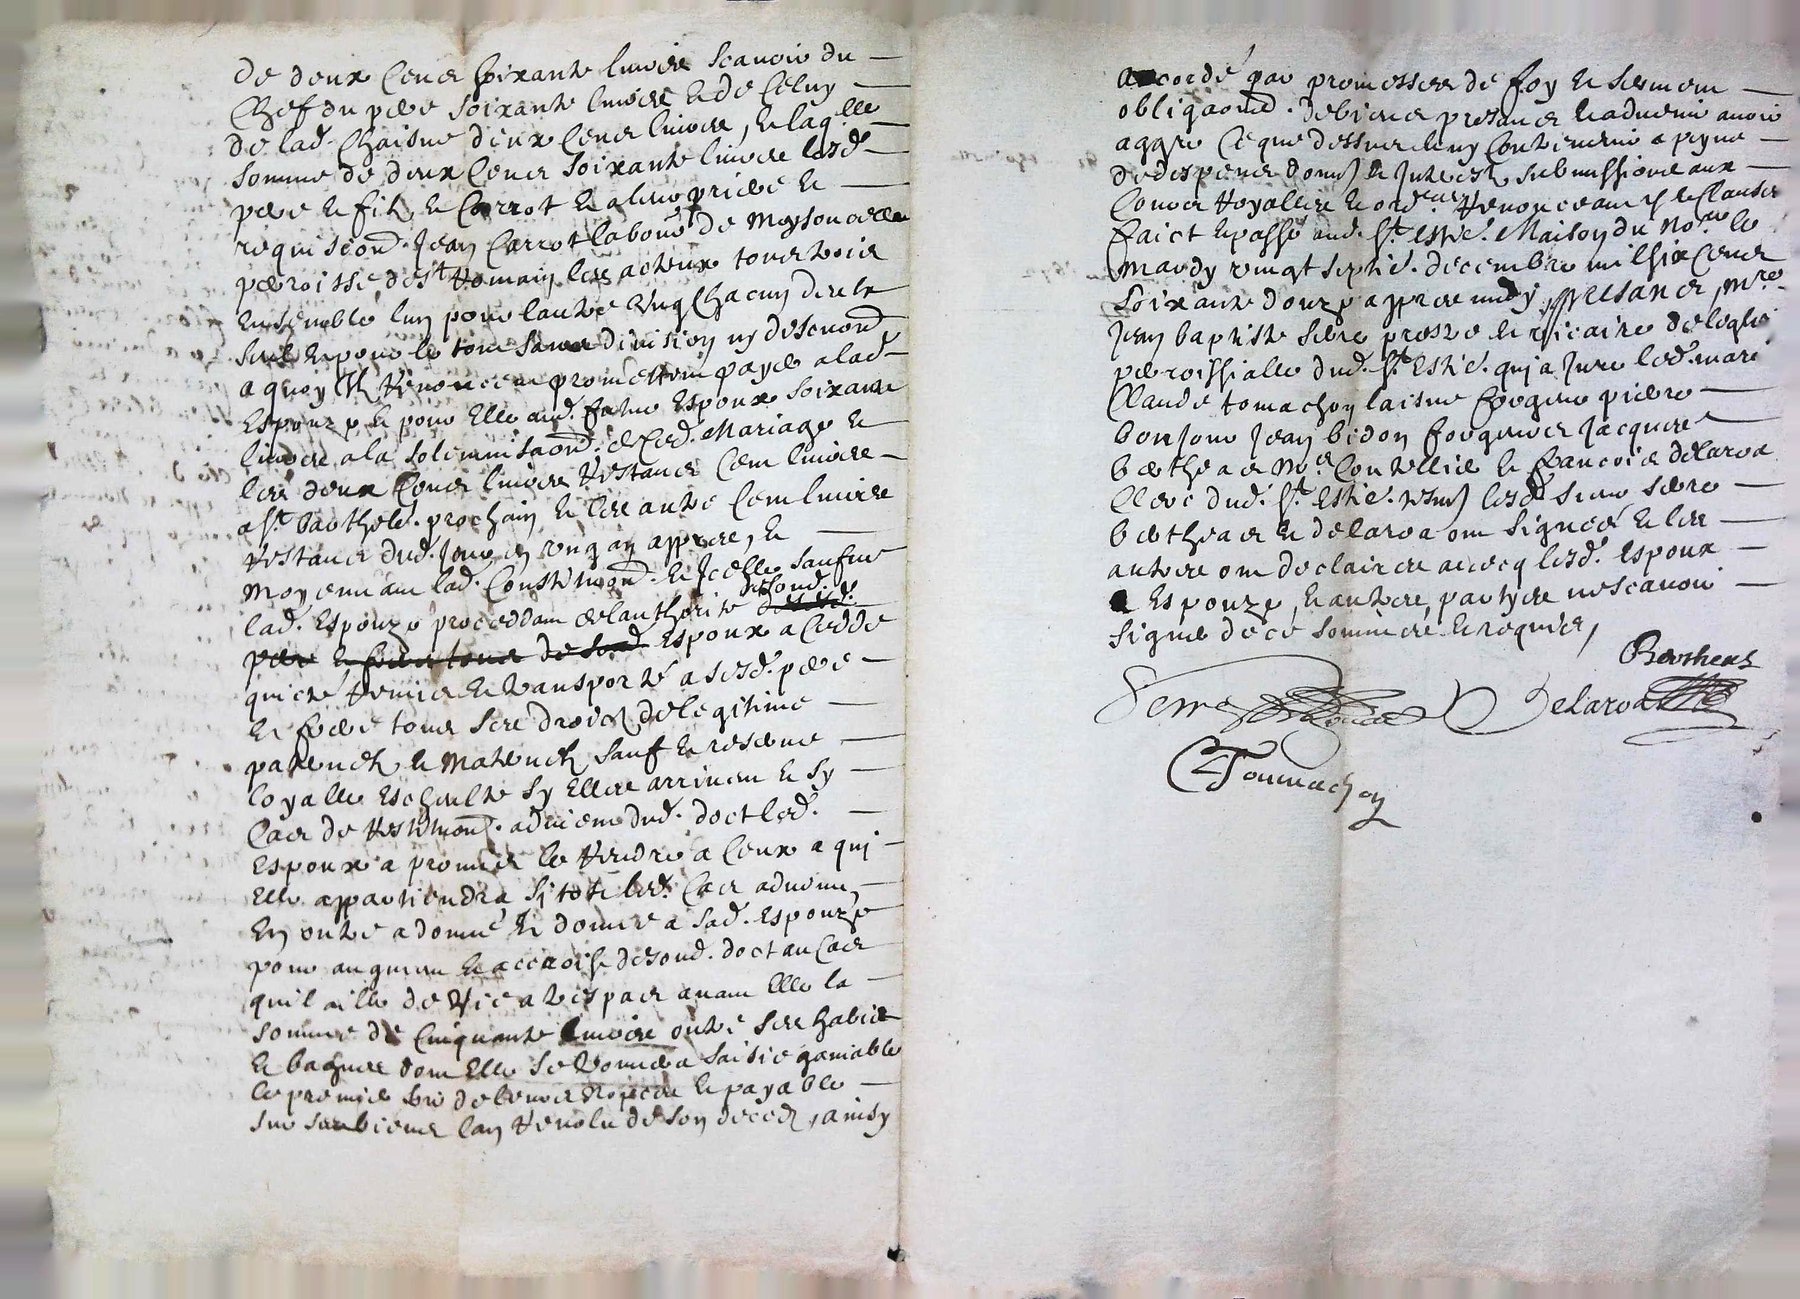 de deux Cens soixante livres scavoir du
Chef du pere soixante livres et de Celuy
de lad. Chaisne deux Cens livres, et laqlle
somme de deux Cens soixante livres lesd.
pere et filz et Carrot et a leur priere et
requisicond. Jean Carrot labour de Moysonnelles
parroisse de st Romain les ateux tous trois
ensemble lun pour lautre Ung Chacun deulx
seul et pour le tout sans division ny discuond
a quoy Ilz Renoncent promettent payer a lad
Espouze et pour Elle aud. futur Espoux soixante
livres a la solempnisaond. de Ced. Mariage et
les deux Cens livres Restans Cent livres
a st. barthele. prochain et les autre Cent livres
Restans dud. jour en ung an appres, et
moyennant lad. Constituond. et Icelle sauf une
lad. Espouze proceddant de lauthorite desond.
Espoux a Cedde
quicté Remis et transporté a sesd. pere
et frere tous ses droictz de legitime
paternelz et maternelz sauf et reserve
loyalle Escheutte sy Elles arrivent et sy
Cas de Restituond. advient dud. doct led.
Espoux a promis le Rendre a Ceux a qui
Elle appartiendra si tost led. Cas advenu
En outre a donné et donne a sad. Espouze
pour augment et accroist desond. doct au Cas
quil aille de vie a trespas avant Elle la
somme de Cinquante livres outre ses habitz
et bagues dont Elle se trouvera saisie ganiable
le premier soir de leurs nopces et payable
sur ses biens lan Revolu de son deceds, ainsy
accordé par promesses de foy et serment
obligaond. de biens presans et advenir avoir
aggre Ce que dessus et ny Contrevenir a peyne
de despens doms et Interestz submissions aux
Cours Royalles et ordres Renonceant et Clauses
faict et passé aud. st. estie. Maison du Nore le
mardy vingt septie. decembre mil six Cens
soixante douze appres midy, presans, Mre
Jean baptiste serre prestre et vicaire de leglise
parroissialle dud. st. Estie. qui a Jure led. mari
Claude tomachon laisne forgeur pierre
bonjour Jean bidon forgeur Jacques
bertheas Mre Coutellier et francois delaroa
Clerc dud. st. Estie. tesms lesd. sieur serre
bertheas et delaroa ont signes et les
autres ont declaires avecq lesd. Espoux
Espouze, et autres, partyes ne scavoir
signer de ce sommeres et requis,
Bertheas
Serre Delaroa
C Toumachon